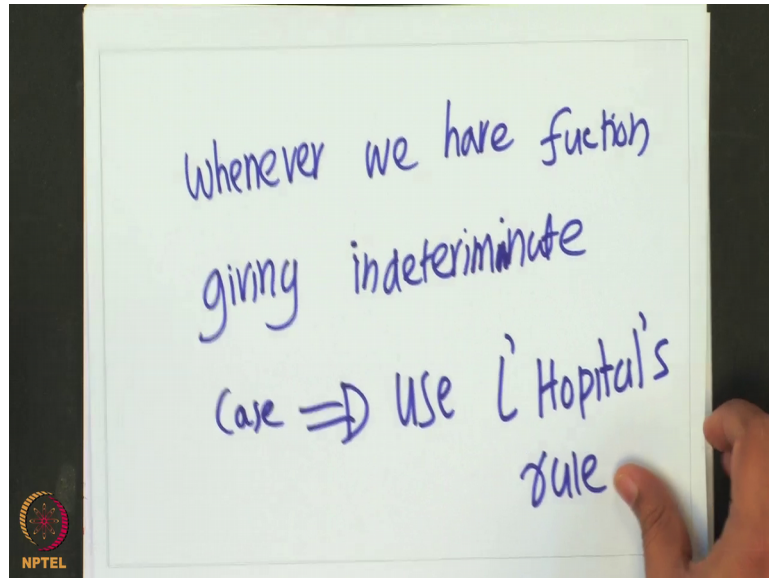 Whenever we have fuction
giving indeteriminate
Case ⇒ use L' Hopital's
rule
NPTEL